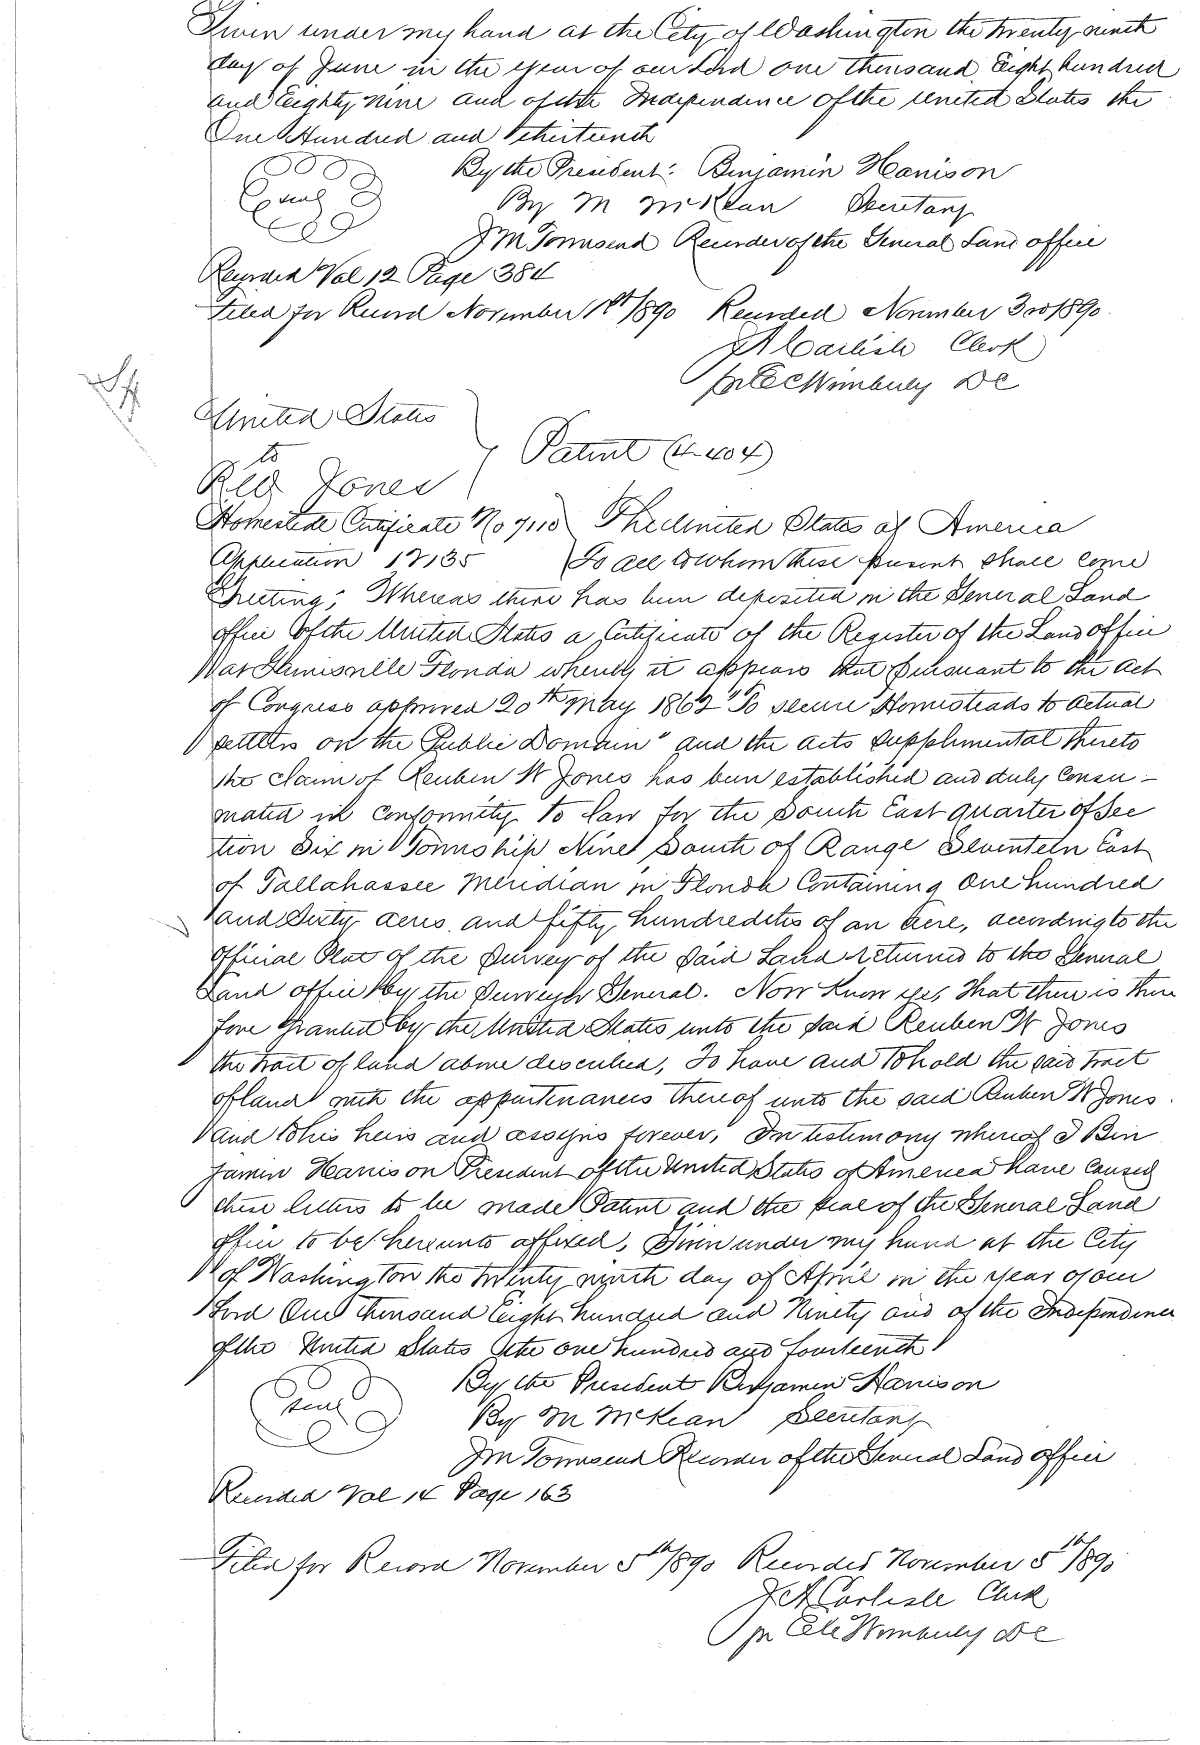 Given under my hand at the City of Washington the twenty ninth
day of June in the year of our Lord one thousand Eight hundred
and Eighty nine and of the Independence of the United States the
One Hundred and thirteenth
By the President: Benjamin Harrison
Seal
By M McKean Secretary
J M Townsend Recorder of the General Land office
Recorded Vol 12 Page 384
Filed for Record November 1st/1890 Recorded November 3rd/1890
J A Carlisle Clerk
pr Wimberly DC
United States
to
Patent (4-404)
Jones
Homestede Certificate No 7110 The United States of America
Application 17135 To all to whom these present shall come
Greeting; Whereas there has been deposited in the General Land
office of the United States a Certificate of the Register of the Land office
at Gainisville Florida whereby it appears that pursuant to the act
of Congress approved 20th May 1862 "To secure Homesteads to actual
settlers on the Public Domain" and the acts supplimental thereto
the claim of Reuben W Jones has been established and duly consu-
mated in conformity to law for the South East quarter of Sec
tion Six in Township Nine South of Range Seventeen East
of Tallahassee Meridian in Florida Containing One hundred
and Sixty acres and fifty hundredths of an acre, according to the
official Plat of the Survey of the said Land returned to the General
Land office by the Surveyor General. Now Know ye, That there is there
fore granted by the United States unto the said Reuben W Jones
the tract of land above described, To have and to hold the said tract
of land with the appurtenances thereof unto the said Reuben W Jones
and to his heirs and assigns forever, In testimony whereof I Ben
jamin Harrison President of the United States of America have caused
these letters to be made Patent and the seal of the General Land
office to be hereunto affixed, Given under my hand at the City
of Washington the twenty ninth day of April in the year of our
Lord One thousand Eight hundred and Ninety and of the Independence
of the United States the one hundred and fourteenth
By the President Benjamin Harrison
Seal
By M McKean Secretary
J M Townsend Recorder of the General Land office
Recorded Vol 14 Page 163
Filed for Record November 5th/1890 Recorded November 5th/1890
J A Carlisle Clerk
pr Wimberly DC